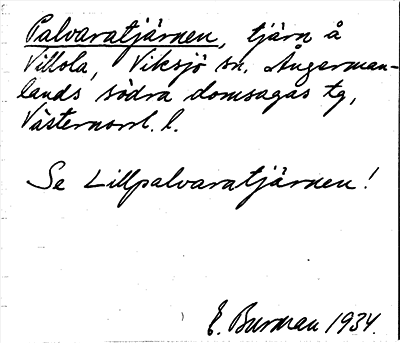 Palvaratjärnen, tjärn å
Villola, Viksjö sn. Ångerman-
lands södra domsagas tg,
Västernorrl. l.
Se Lillpalvaratjärnen!
E. Burman 1934.